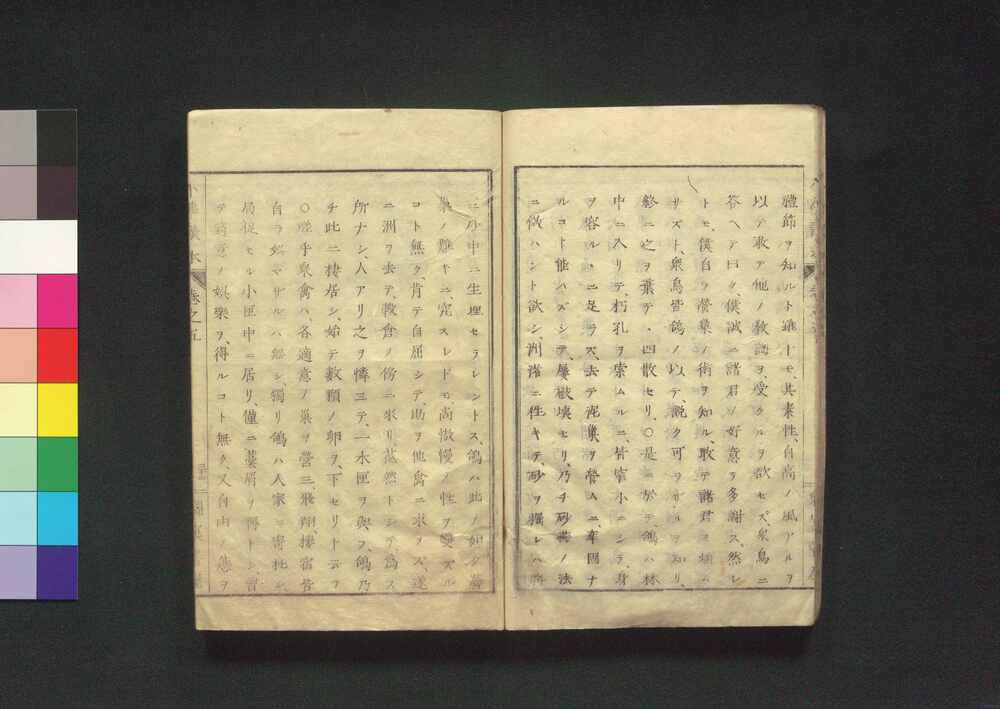 禮節ヲ知ルト雖トモ、其素性、自高ノ風アルヲ
以テ敢テ他ノ教誨ヲ受クルヲ欲セズ、衆鳥ニ
答ヘテ曰ク、僕誠ニ諸君ノ好意ヲ多謝ス、然レ
トモ、僕自ラ營巣ノ術ヲ知ル、敢テ諸君ヲ煩ハ
サズト、衆鳥皆鴿ノ以テ、説ク可ラザルヲ知リ、
終ニ之ヲ棄テ、四散セリ、○是ニ於テ鴿ハ林
中ニ入リテ、朽孔ヲ索ムルニ、皆窄小ニシテ、身
ヲ容ルヽニ足ラズ、去テ泥巣ヲ營ムニ、牢固ナ
ルコト能ハズシテ、屢破壊セリ、乃チ砂燕ノ法
ニ倣ハント欲シ、洲渚ニ往キテ、砂ヲ掘レハ
沙中ニ生埋セラレントス、鴿ハ此ノ如ク
巣ノ難キニ、窮スレドモ、高傲慢ノ性ヲ變ズル
コト無ク、肯テ自屈シテ、助ヲ他禽ニ求メズ、遂
ニ洲ヲ去テ、穀倉ノ傍ニ來リ、茫然トシテ爲ス
所ナシ、人アリ之ヲ憐ミテ、一木匣ヲ與フ、鴿乃
チ此ニ棲居シ、始テ數顆ノ卵ヲ、下セリト云フ
○嗟乎衆禽ハ、各適意ノ巣ヲ營ミ飛翔捿宿皆
自ラ娯マザルハ無シ、獨リ鴿ハ人家ニ寄托シ、
局促セル小匣中ニ居リ、僅ニ藁屑ヲ得トシ
テ適意ノ娯樂ヲ、得ルコト無ク、又自由ノ態ヲ
小學讀本
卷之五